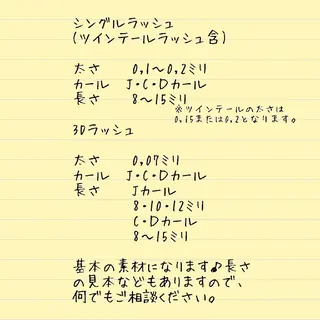 シングルラッシュ
(ツインテールラッシュ含)
太さ 0,1〜0,2ミリ
カール J・C・Dカール
長さ 8〜15ミリ
※ツインテールの太さは
0,15または0,2となります。
3Dラッシュ
太さ 0,07ミリ
カール J・C・Dカール
長さ Jカール
8・10・12ミリ
C・Dカール
8〜15ミリ
基本の素材になります♪長さ
の見本などもありますので、
何でもご相談ください。